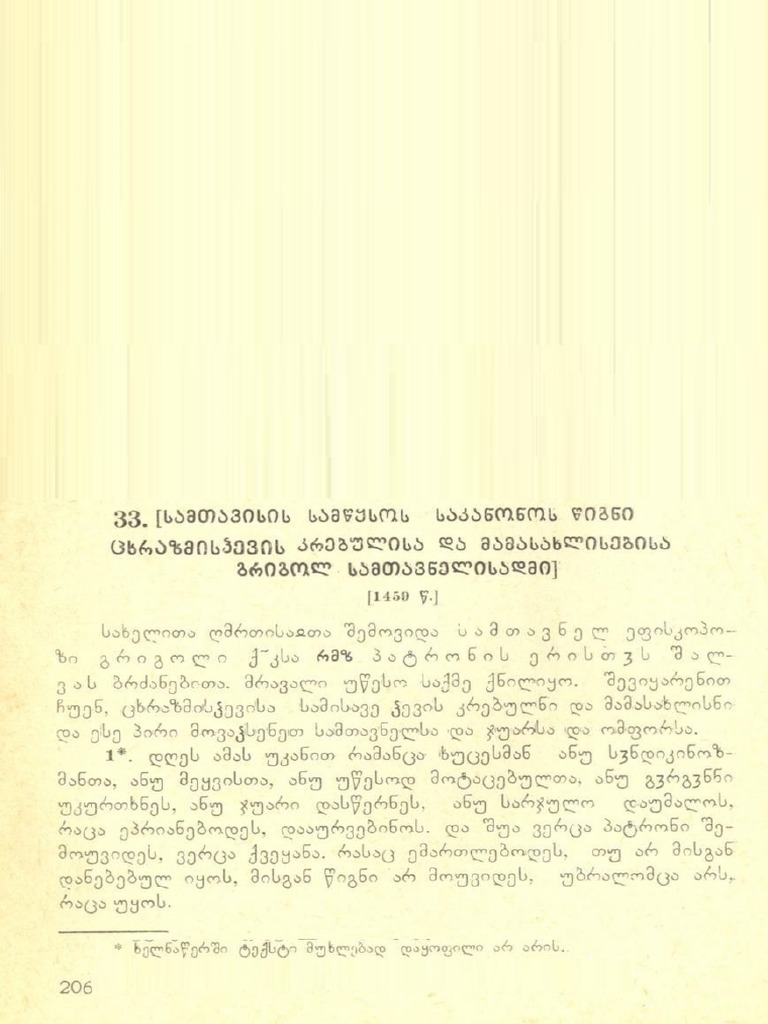 33. [სამთავისის სამწყსოს საკანონოს წიგნი
ცხრაზმისჴევის კრებულისა და მამასახლისებისა
გრიგოლ სამთავნელისადმი]
[1459 წ.]
სახელითა ღმრთისაჲთა შემოვიდა სამთავნელ ეფისკოპო-
ზი გრიგოლი ქ~კსა რმზ პატრონის ერისთჳს შალ-
ვას ბრძანებითა. მრავალი უწესო საქმე ქნილიყო. შევიყარენით
ჩუენ, ცხრაზმისჴევისა სამისავე ჴევის კრებულნი და მამასახლისნი
და ესე პირი მოვაჴსენეთ სამთავნელსა და ჯუარსა და ომფორსა.
1*. დღეს ამას უკანით რამანცა ხუცესმან ანუ სჳნდიკინოზ-
მანთა, ანუ მეყვისთა, ანუ უწესოდ მოტაცებულთა, ანუ გჳრგჳნნი
უკურთხნეს, ანუ ჯუარი დასწერნეს, ანუ სარჯულო დაუმალოს,
რაცა ეპრიანებოდეს, დააურვებინოს. და შუა ვერცა პატრონი შე-
მოუვიდეს, ვერცა ქვეყანა. რასაც ემართლებოდეს, თუ არ მისგან
დანებებულ იყოს, მისგან წიგნი არ მოუვიდეს, უბრალომცა არს,
რაცა უყოს.
* ხელნაწერში ტექსტი მუხლებად დაყოფილი არ არის.
206